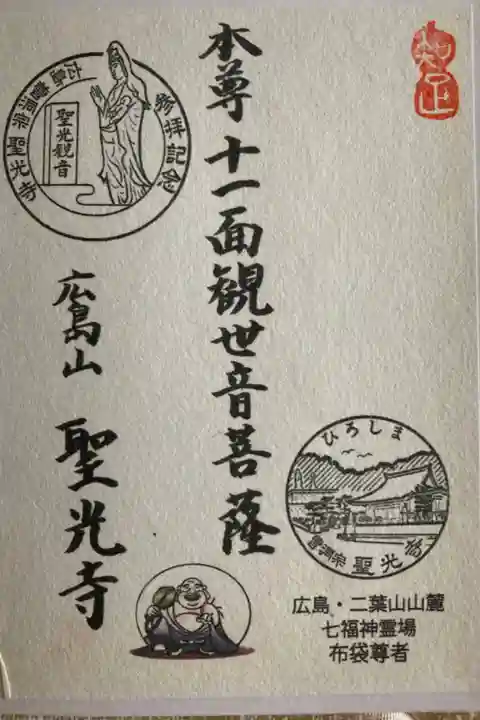 知足
本尊 十一面観世音菩薩
広島山 聖光寺
参拝記念
聖光観音
広島 曹洞宗 聖光寺
ひろしま
曹洞宗 聖光
広島・二葉山山麓
七福神霊場
布袋尊者